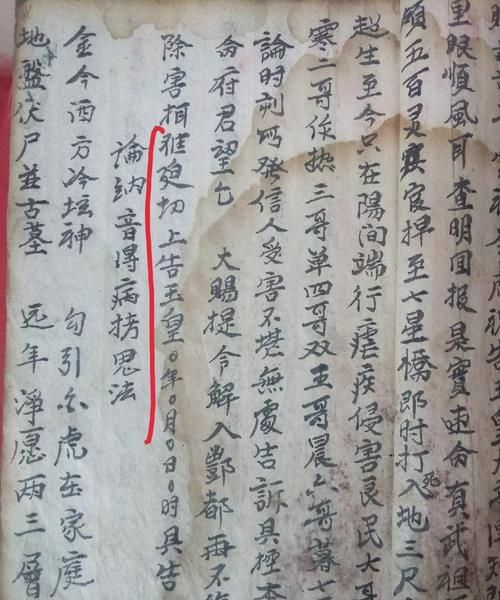 里眼順風耳查明回报是實速侖有武祖
領五百灵官捍至七星橋即时打入死地三尺
趂生至今只在陽间端行瘧疾侵害良民大哥
寒二哥作热三哥单四哥双五哥晨六哥暮七
論时刻所發信人受害不堪無處告訴具控本
侖府君望乞 大賜提令解入酆都再不
除害 切上告玉皇〇年〇月〇日〇时具告
論納音得病拷鬼法
金今酉方冷坛神 勾引白虎在家庭
地盤伏尸并古墓 远年淨愿两三層